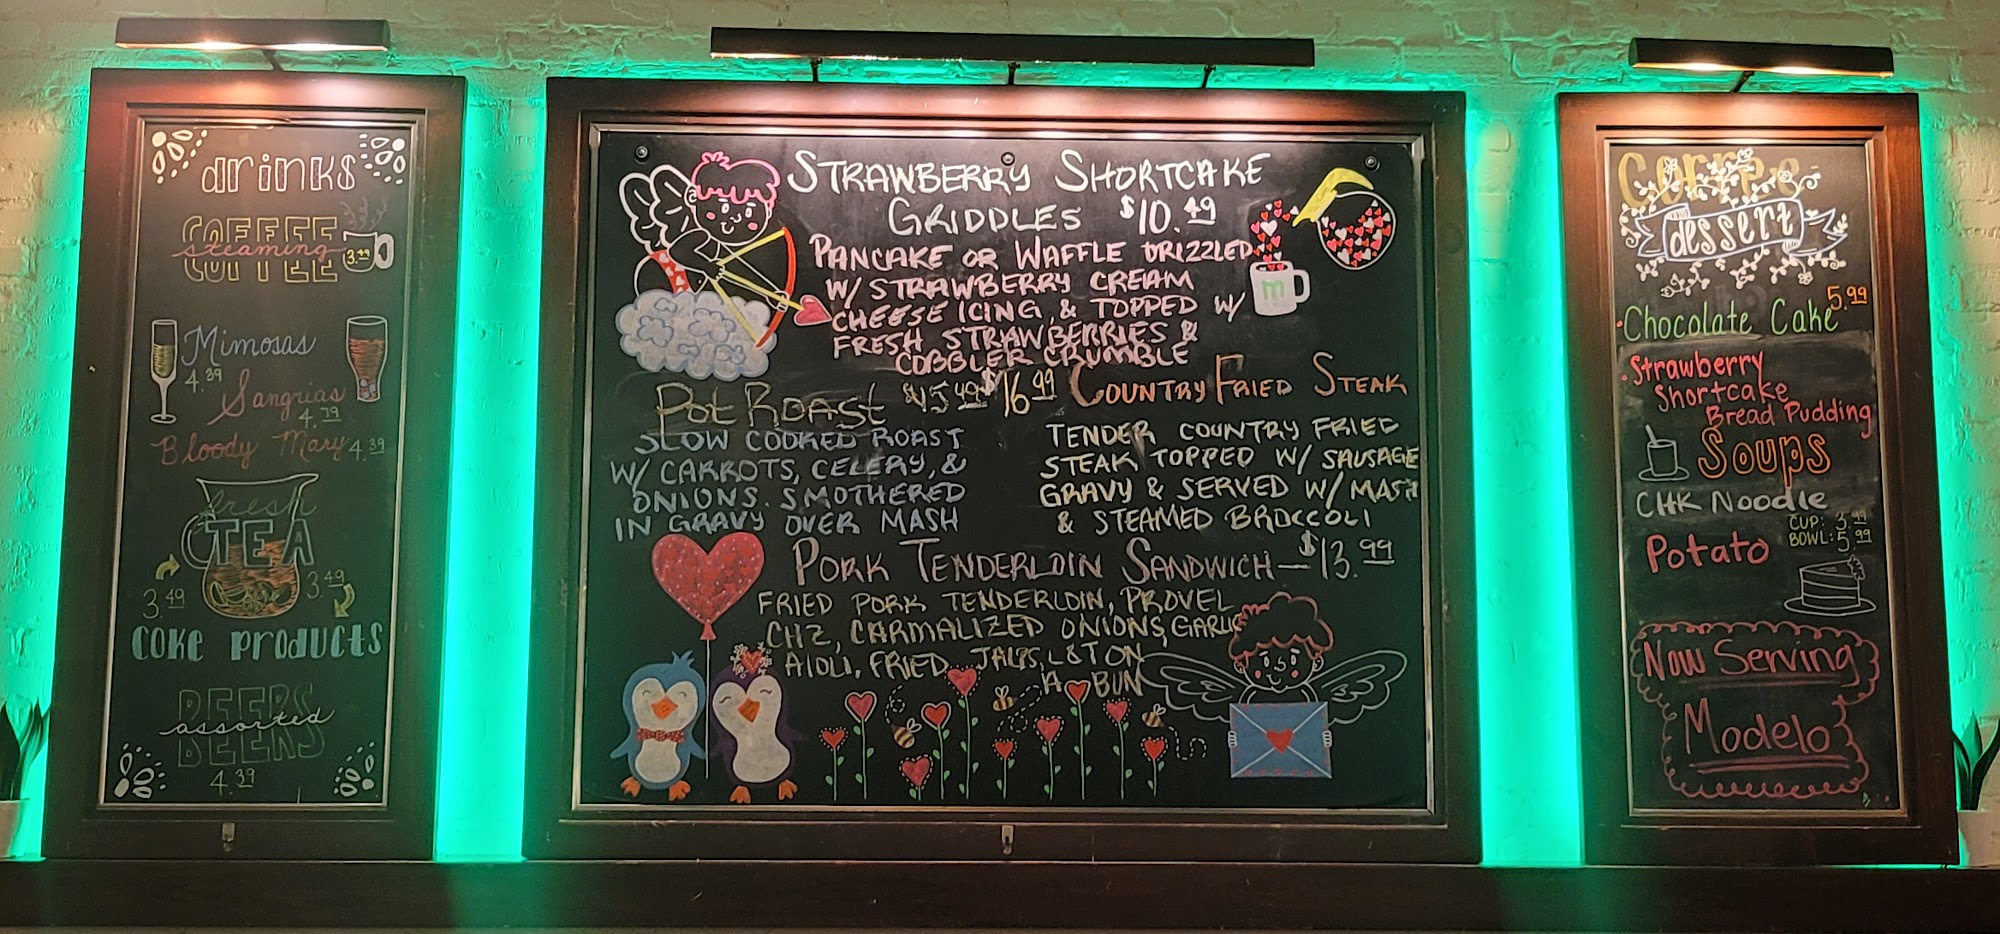 drinks
COFFEE
steaming
COFFEE
3.99
Mimosas
4.39
Sangrias
4.79
Bloody Mary 4.39
fresh
TEA
3.49
3.49
COKE PRODUCTS
BEERS
assorted
BEERS
4.39
STRAWBERRY SHORTCAKE
GRIDDLES $10.49
PANCAKE OR WAFFLE DRIZZLED
W/ STRAWBERRY CREAM
CHEESE ICING & TOPPED W/
FRESH STRAWBERRIES &
COBBLER CRUMBLE
m
POT ROAST $15.49
SLOW COOKED ROAST
W/ CARROTS, CELERY, &
ONIONS. SMOTHERED
IN GRAVY OVER MASH
$16.99 COUNTRY FRIED STEAK
TENDER COUNTRY FRIED
STEAK TOPPED W/ SAUSAGE
GRAVY & SERVED W/ MASH
& STEAMED BROCCOLI
PORK TENDERLOIN SANDWICH — $13.99
FRIED PORK TENDERLOIN, PROVEL
CHZ, CARMALIZED ONIONS, GARLIC
AIOLI, FRIED JALPS, L&T ON
A BUN
Coffee
dessert
Chocolate Cake 5.99
Strawberry
Shortcake
Bread Pudding
Soups
CHK Noodle
CUP: 3.99
BOWL: 5.99
Potato
Now Serving
Modelo